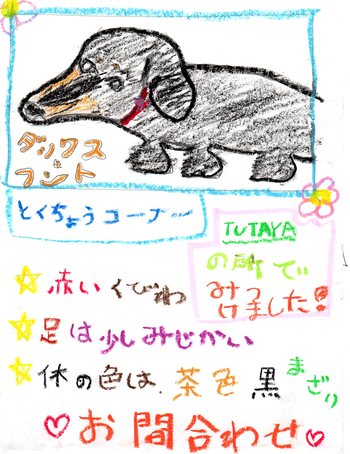 ダックス
フント
とくちょうコーナー
TUTAYA
の所で
みつ
けました!
赤いくびわ
足は少しみじかい
体の色は、茶色 黒 まざり
お問合わせ